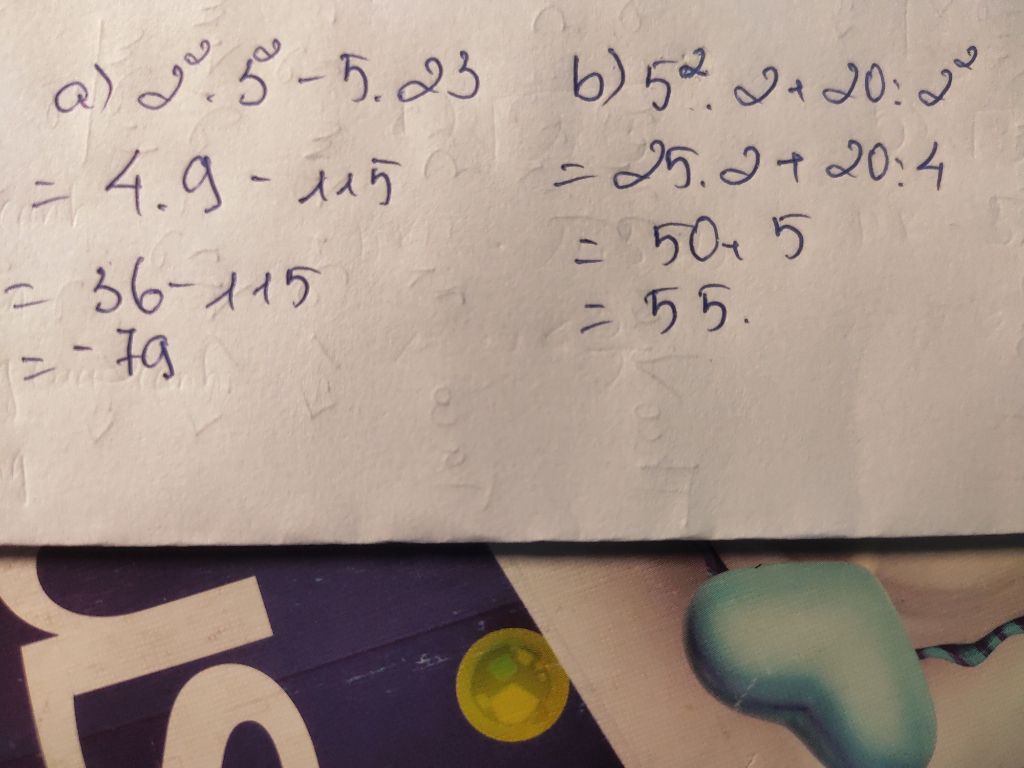 a) 2² . 3² - 5 . 23
= 4 . 9 - 115
= 36 - 115
= - 79
b) 5² . 2 + 20 : 2²
= 25 . 2 + 20 : 4
= 50 + 5
= 55.